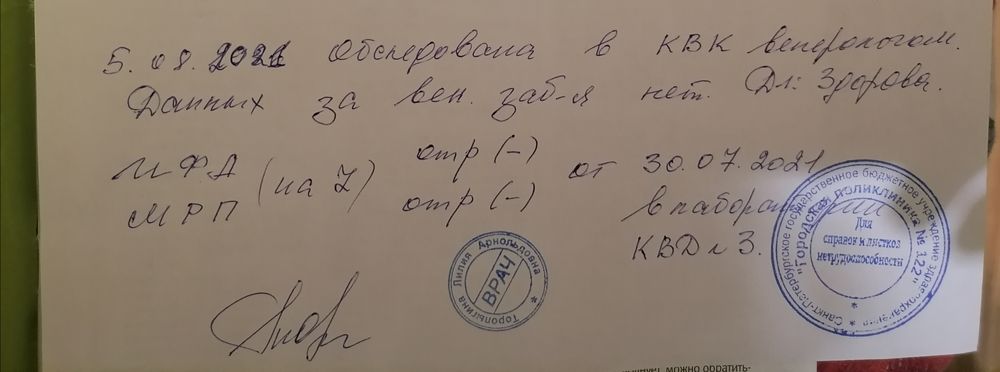 5.08.2021 Обследована в КВК венерологом.
Данных за вен. заб-я нет. Ds: Здорова.
ИФА (на 7) отр (-) от 30.07.2021
МРП отр (-) в лаборатории
КВД № 3.
Торопыгина Лилия Арнольдовна *
ВРАЧ
Санкт-Петербургское государственное бюджетное учреждение здравоохранения *
"Городская поликлиника № 122" *
Для
справок и листков
нетрудоспособности
можно обратить-